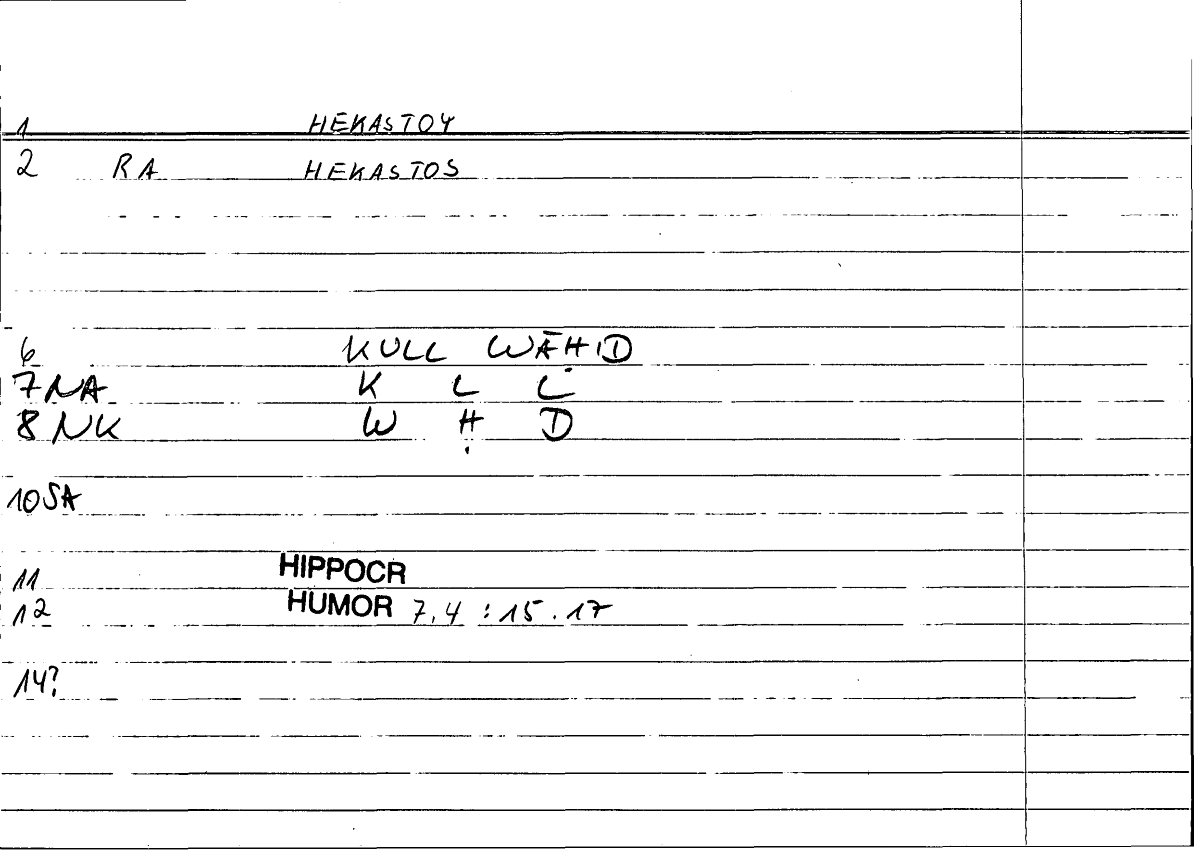 1 HEKASTOY
2 RA HEKASTOS
6 KULL WĀḤID
7 NA K L L
8 NK W Ḥ D
10 SA
11 HIPPOCR
12 HUMOR 7,4 : 15.17
14?